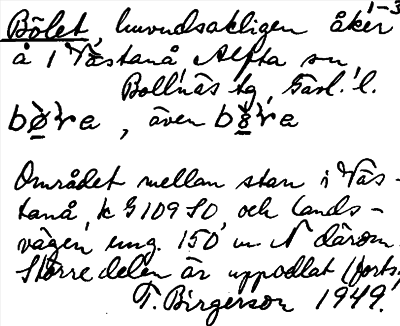 Bölet, huvudsakligen åker 1-3
å 1 Västanå, Alfta sn,
Bollnäs tg, Gävl. l.
bø̀re, även bö̀re
Området mellan stan i Väs-
tanå, k G109 SO, och lands-
vägen, ung. 150 m N därom.
Större delen är uppodlat (forts.)
T. Birgerson 1949.